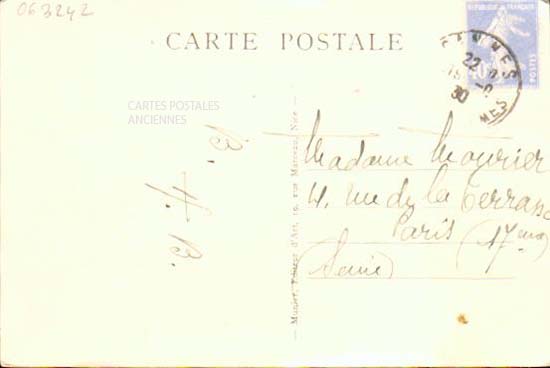 063242
CARTE POSTALE
REPUBLIQUE FRANÇAISE
POSTES
40
CANNES
22
30
MES
CARTES POSTALES
ANCIENNES
Madame Mourier
4, rue de la Terrasse
Paris (17eme)
(Seine)
Editeur d'Art, 19, rue Nice